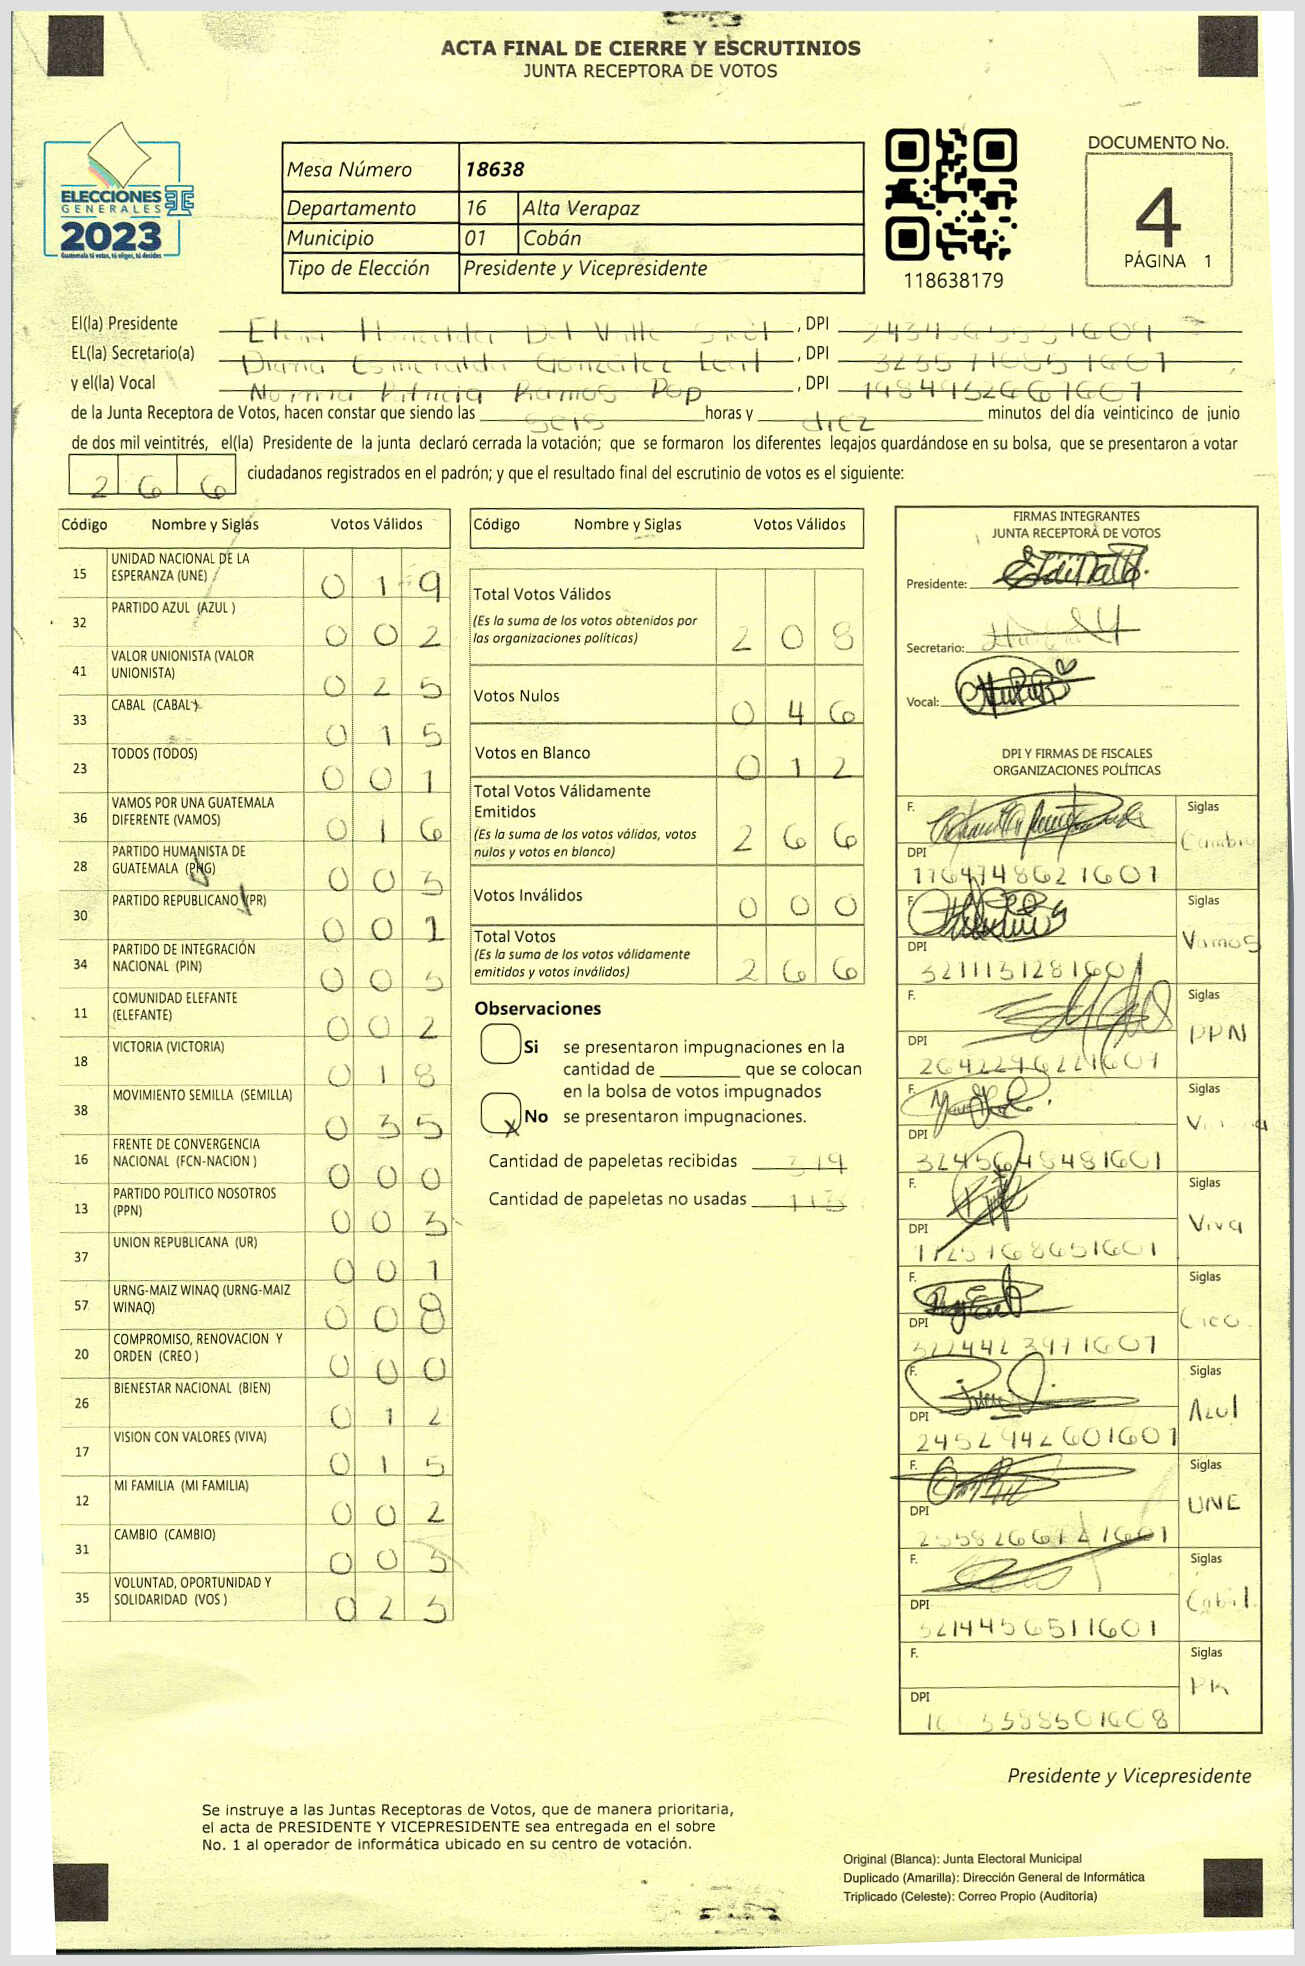 ACTA FINAL DE CIERRE Y ESCRUTINIOS
JUNTA RECEPTORA DE VOTOS
ELECCIONES
GENERALES
2023
Guatemala tú votas, tú eliges, tú decides
Mesa Número 18638
Departamento 16 Alta Verapaz
Municipio 01 Cobán
Tipo de Elección Presidente y Vicepresidente
118638179
DOCUMENTO No.
4
PÁGINA 1
El(la) Presidente Del Valle , DPI
EL(la) Secretario(a) Diana Esmeralda González Leal , DPI
y el(la) Vocal Norma Patricia Ramos Pop , DPI 1984952661601
de la Junta Receptora de Votos, hacen constar que siendo las seis horas y diez minutos del día veinticinco de junio
de dos mil veintitrés, el(la) Presidente de la junta declaró cerrada la votación; que se formaron los diferentes legajos guardándose en su bolsa, que se presentaron a votar
266 ciudadanos registrados en el padrón; y que el resultado final del escrutinio de votos es el siguiente:
Código Nombre y Siglas Votos Válidos
15 UNIDAD NACIONAL DE LA ESPERANZA (UNE) 0 1 9
32 PARTIDO AZUL (AZUL ) 0 0 2
41 VALOR UNIONISTA (VALOR UNIONISTA) 0 2 5
33 CABAL (CABAL ) 0 1 5
23 TODOS (TODOS) 0 0 1
36 VAMOS POR UNA GUATEMALA DIFERENTE (VAMOS) 0 1 6
28 PARTIDO HUMANISTA DE GUATEMALA (PHG) 0 0 3
30 PARTIDO REPUBLICANO (PR) 0 0 1
34 PARTIDO DE INTEGRACIÓN NACIONAL (PIN) 0 0 5
11 COMUNIDAD ELEFANTE (ELEFANTE) 0 0 2
18 VICTORIA (VICTORIA) 0 1 8
38 MOVIMIENTO SEMILLA (SEMILLA) 0 3 5
16 FRENTE DE CONVERGENCIA NACIONAL (FCN-NACION ) 0 0 0
13 PARTIDO POLITICO NOSOTROS (PPN) 0 0 3
37 UNION REPUBLICANA (UR) 0 0 1
57 URNG-MAIZ WINAQ (URNG-MAIZ WINAQ) 0 0 8
20 COMPROMISO, RENOVACION Y ORDEN (CREO ) 0 0 0
26 BIENESTAR NACIONAL (BIEN) 0 1 2
17 VISION CON VALORES (VIVA) 0 1 5
12 MI FAMILIA (MI FAMILIA) 0 0 2
31 CAMBIO (CAMBIO) 0 0
35 VOLUNTAD, OPORTUNIDAD Y SOLIDARIDAD (VOS ) 0 2 3
Código Nombre y Siglas Votos Válidos
Total Votos Válidos 2 0 8
(Es la suma de los votos obtenidos por
las organizaciones políticas)
Votos Nulos 0 4 6
Votos en Blanco 0 1 2
Total Votos Válidamente
Emitidos 2 6 6
(Es la suma de los votos válidos, votos
nulos y votos en blanco)
Votos Inválidos 0 0 0
Total Votos 2 6 6
(Es la suma de los votos válidamente
emitidos y votos inválidos)
Observaciones
Si se presentaron impugnaciones en la
cantidad de ________ que se colocan
en la bolsa de votos impugnados
X No se presentaron impugnaciones.
Cantidad de papeletas recibidas
Cantidad de papeletas no usadas
FIRMAS INTEGRANTES
JUNTA RECEPTORA DE VOTOS
Presidente:
Secretario:
Vocal:
DPI Y FIRMAS DE FISCALES
ORGANIZACIONES POLÍTICAS
F. Siglas Cambio
DPI 1764748621601
F. Siglas Vamos
DPI 3211131281601
F. Siglas PPN
DPI 2642296221601
F. Siglas
DPI 3245648481601
F. Siglas Viva
DPI 1725768651601
F. Siglas Creo.
DPI
F. Siglas Azul
DPI 2452942601601
F. Siglas UNE
DPI
F. Siglas Cabal.
DPI 3214456511601
F. Siglas PR
DPI
Presidente y Vicepresidente
Se instruye a las Juntas Receptoras de Votos, que de manera prioritaria,
el acta de PRESIDENTE Y VICEPRESIDENTE sea entregada en el sobre
No. 1 al operador de informática ubicado en su centro de votación.
Original (Blanca): Junta Electoral Municipal
Duplicado (Amarilla): Dirección General de Informática
Triplicado (Celeste): Correo Propio (Auditoria)